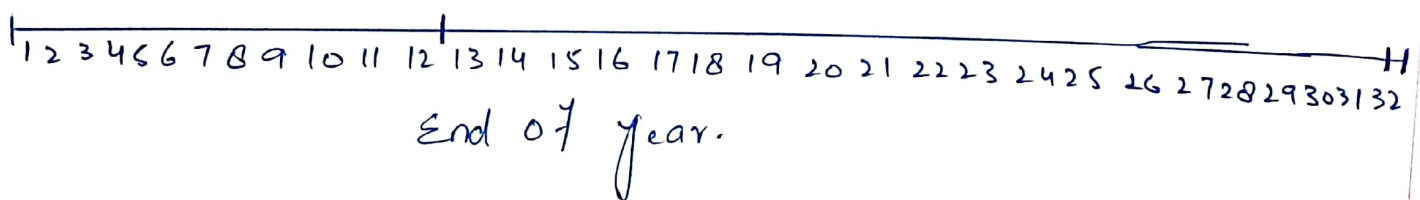 1 2 3 4 5 6 7 8 9 10 11 12 13 14 15 16 17 18 19 20 21 22 23 24 25 26 27 28 29 30 31 32
End of year.